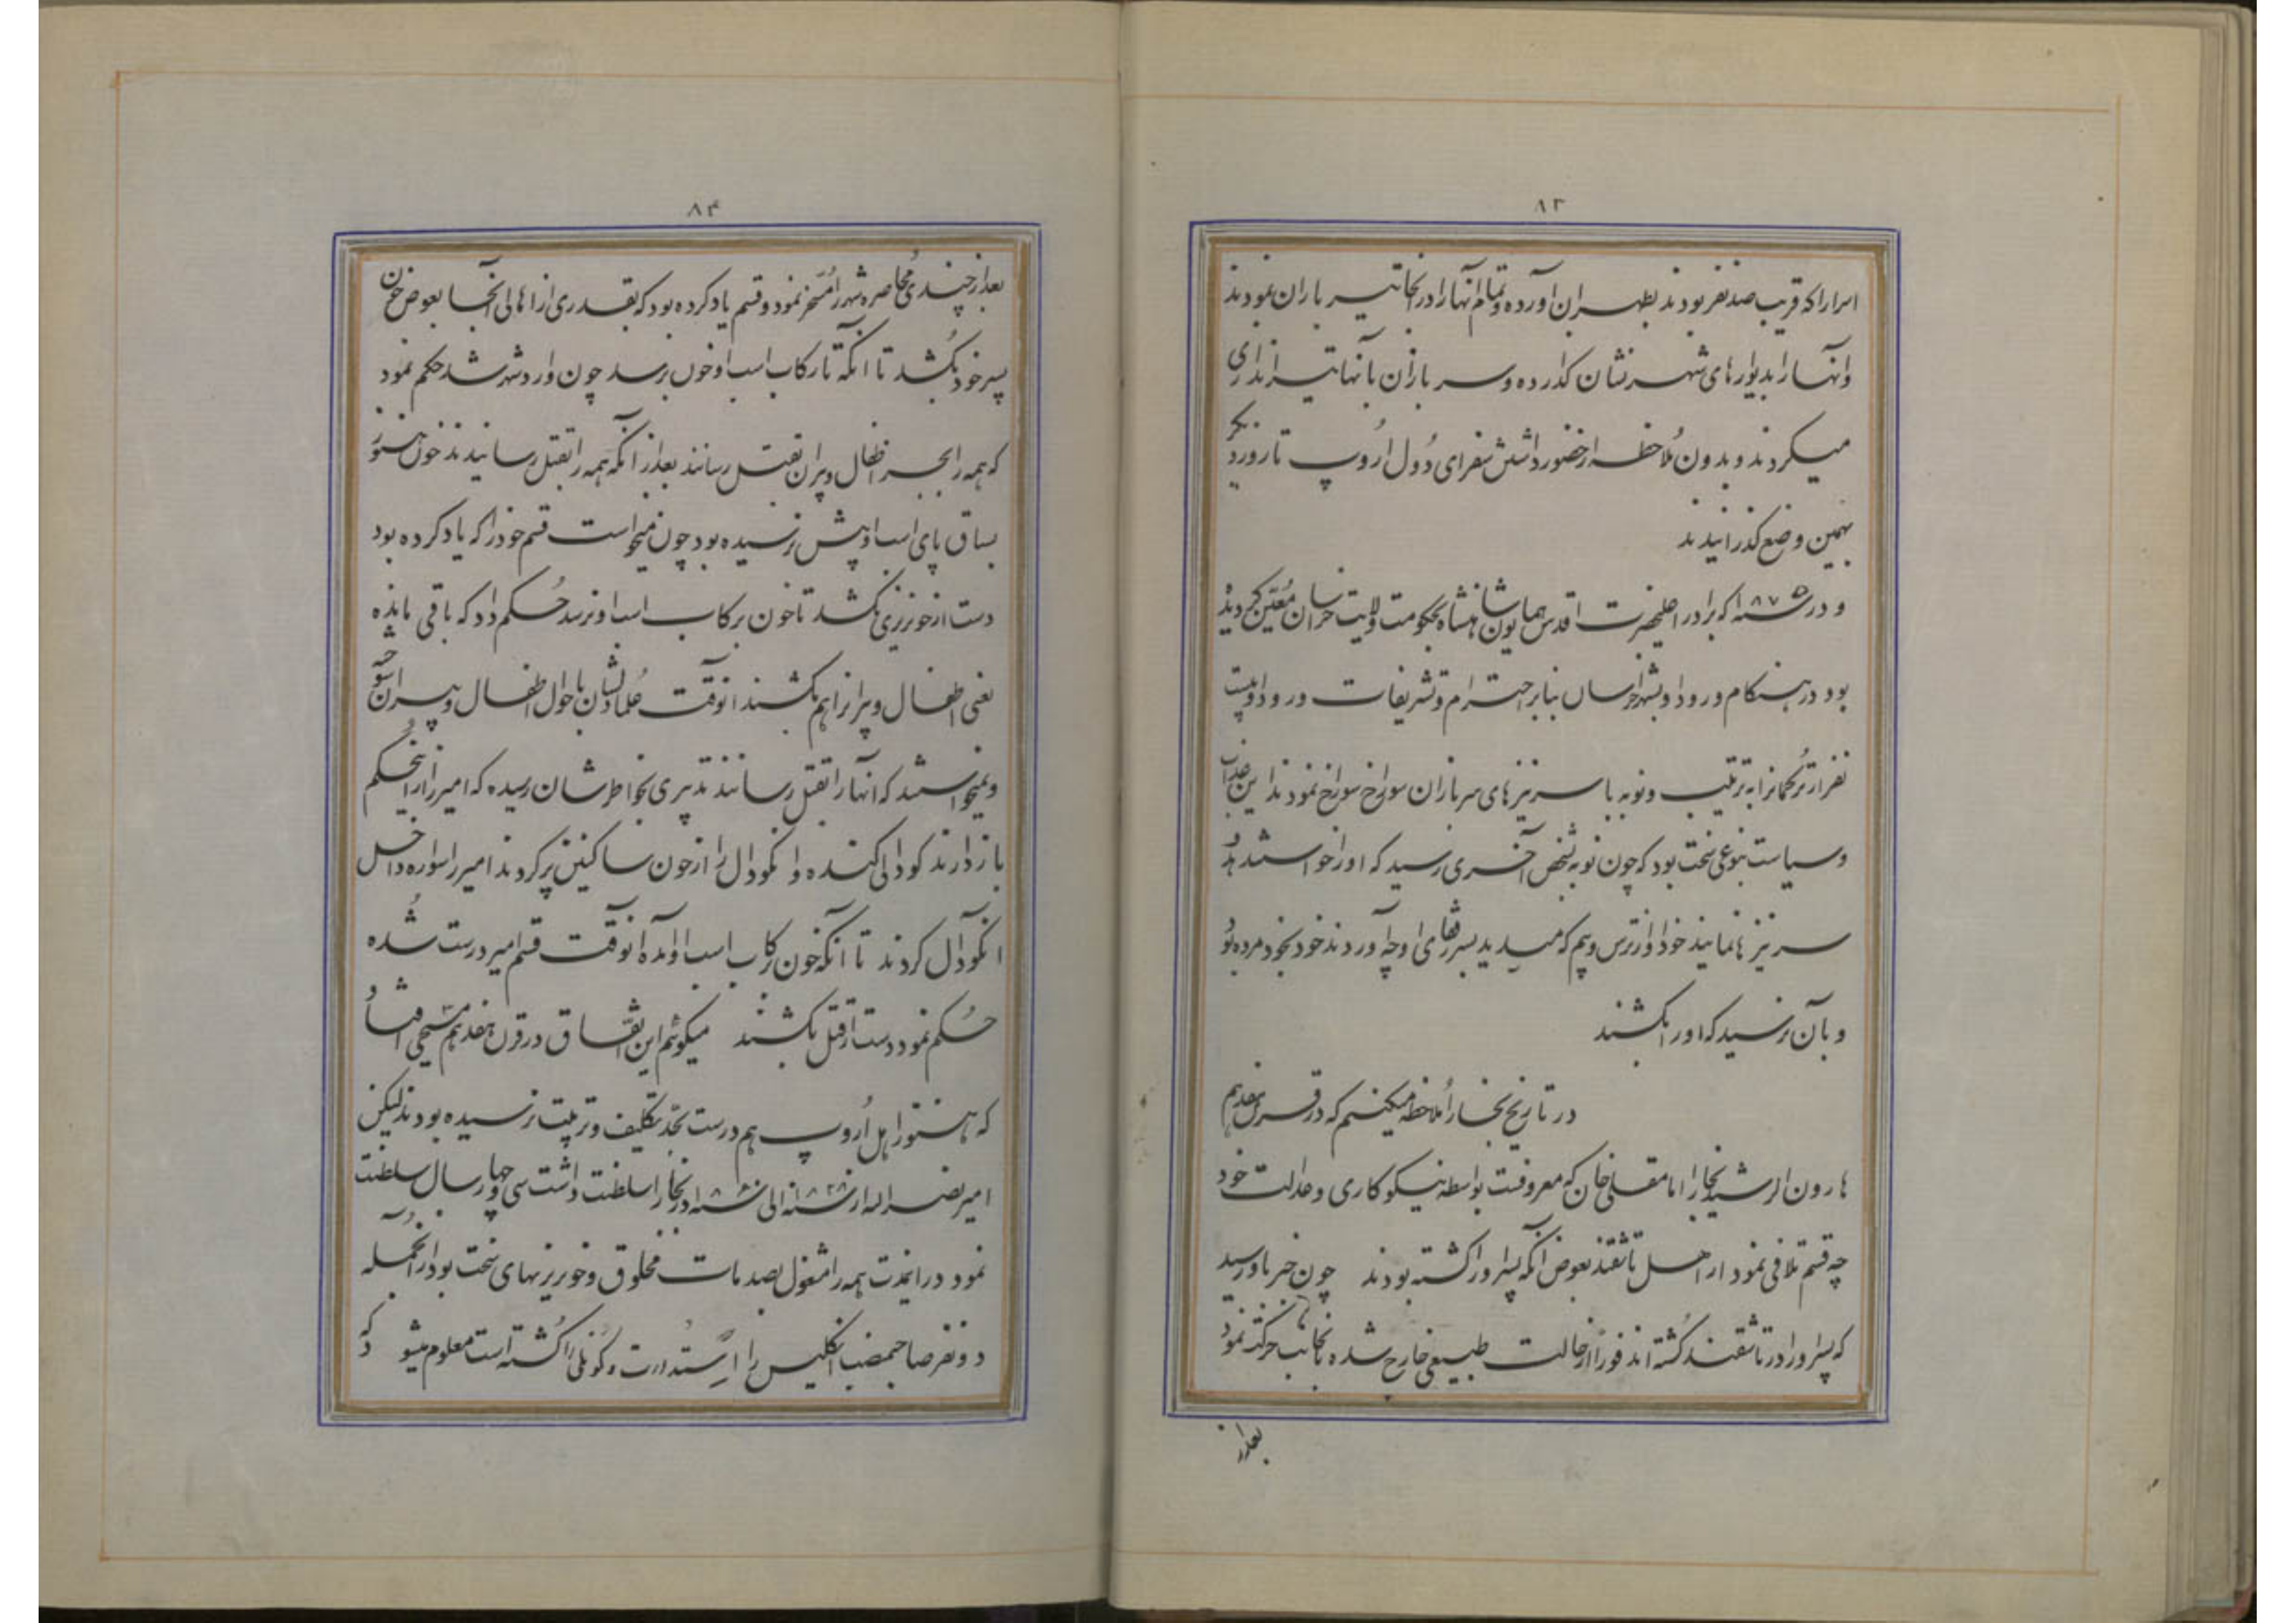 ۸۳
اسرا را که قریب صد نفر بودند بطهران آورده و تمام آنها را در آنجا تیر باران نمودند
و آنها را بدیوارهای شهر نشان گذارده و سربازان بآنها تیراندازی
میکردند و بدون ملاحظه از حضور داشتن سفرای دول اروپ تا روز دیگر
بهمین وضع گذرانیدند
و در سنه ۱۸۷۵ که برادر اعلیحضرت اقدس همایون شاهنشاه بحکومت ولایت خراسان معین گردیده
بود در هنگام ورود او بشهر خراسان بنابر احترام و تشریفات ورود او بیست
نفر از ترکمانرا به ترتیب و نوبه با سر نیزهای سربازان سوراخ سوراخ نمودند این عذاب
و سیاست بنوعی سخت بود که چون نوبه بشخص آخری رسید که او را خواستند
سر نیزها نمایند خود او از ترس و بیم که میدید بسر رفقای او چه آوردند خود بخود مرده بود
و بآن نرسید که او را بکشند
در تاریخ بخارا ملاحظه میکنیم که در قرن هفدهم
هارون الرشید بخارا امامقلی خان که معروفست بواسطه نیکوکاری و عدالت خود
چه قسم تلافی نمود از اهل تاشقند بعوض آنکه پسر او را کشته بودند چون خبر باو رسید
که پسر او را در تاشقند کشته اند فوراً از حالت طبیعی خارج شده بآنجانب حرکت نمود
بعد از
۸۴
بعد از چندی محاصره شهر را مسخر نمود و قسم یاد کرده بود که بقدری از اهالی آنجا بعوض خون
پسر خود بکشد تا آنکه تا رکاب اسب او خون برسد چون وارد شهر شد حکم نمود
که همه را بجز اطفال و پیران بقتل رسانند بعد از آنکه همه را بقتل رسانیدند خون هنوز
بساق پای اسب او پیش نرسیده بود چون میخواست قسم خود را که یاد کرده بود
دست از خونریزی نکشد تا خون برکاب اسب او نرسد حکم داد که باقی مانده
یعنی اطفال و پیرانرا هم بکشند آنوقت علما دلشان باحوال اطفال و پیران سوخته
و نمیخواستند که آنها را بقتل رسانند تدبیری بخاطرشان رسیده که امیر را از اینحکم
باز دارند کودالی کنده و آنکودال را از خون ساکنین پر کردند امیر را سواره داخل
آنکودال کردند تا آنکه خون برکاب اسب او آمده آنوقت قسم امیر درست شده
حکم نمود دست از قتل بکشند میگوئیم این اتفاق در قرن هفدهم مسیحی افتاد
که هنوز اهل اروپ هم درست بحد تکلیف و تربیت نرسیده بودند لیکن
امیر نصراله از سنه ۱۸۲۶ الی سنه ۱۸۶۰ در بخارا سلطنت داشت سی و چهار سال سلطنت
نمود در اینمدت همه را مشغول بصدمات مخلوق و خونریزیهای سخت بود از آنجمله
دو نفر صاحبمنصب انگلیس را استدارت و کونلی را کشته است معلوم میشود که